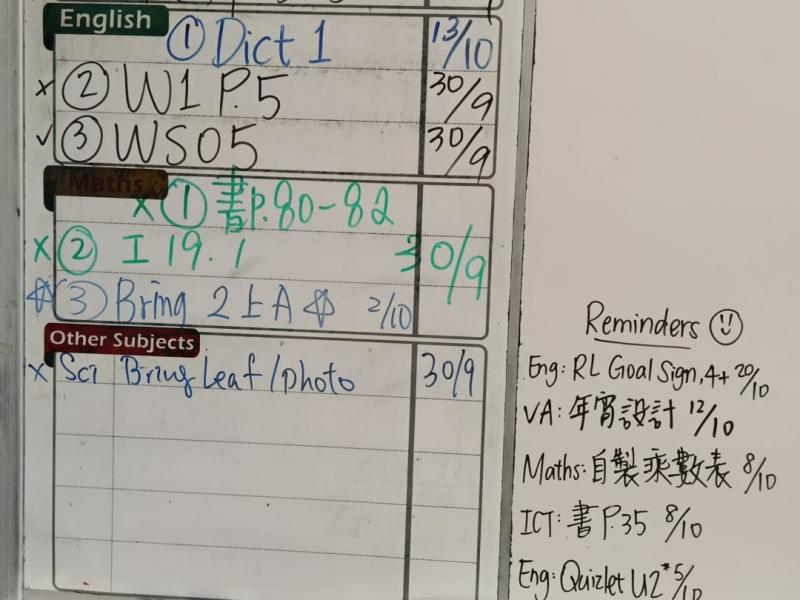 English
① Dict 1 13/10
x ② W1 P.5 30/9
✓ ③ WS05 30/9
Maths
x ① 書P.80-82
x ② I 19.1 30/9
☆ ③ Bring 2上A ☆ 2/10
Other Subjects
x Sci Bring Leaf/photo 30/9
Reminders
Eng: RL Goal Sign, 4+ 20/10
VA: 年宵設計 12/10
Maths: 自製乘數表 8/10
ICT: 書P.35 8/10
Eng: Quizlet U2* 5/10